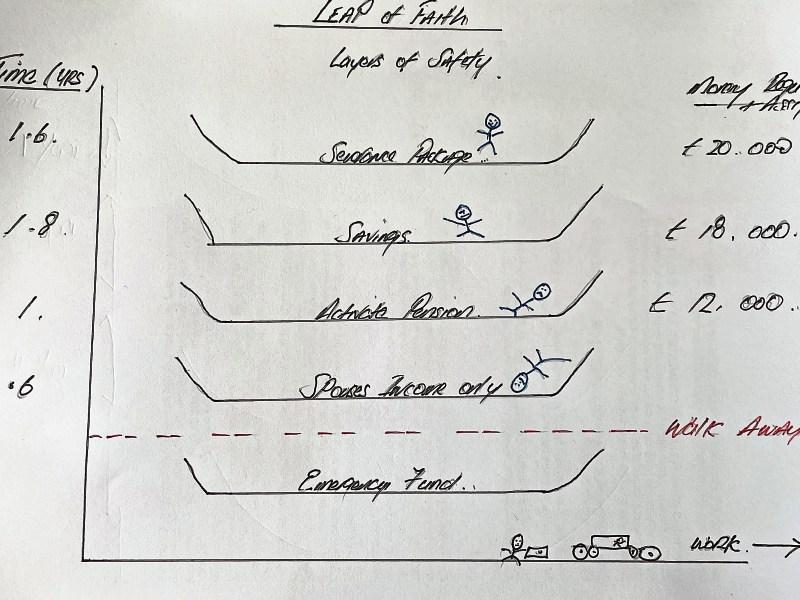 LEAP of FAITH
Layers of Safety.
Time (YRS)
1.6. Severance Package.. £ 20.000
1.8. Savings. £ 18.000.
1. Activate Pension. £ 12.000..
.6 Spouses Income only
WALK AWAY
Emergency Fund...
WORK.